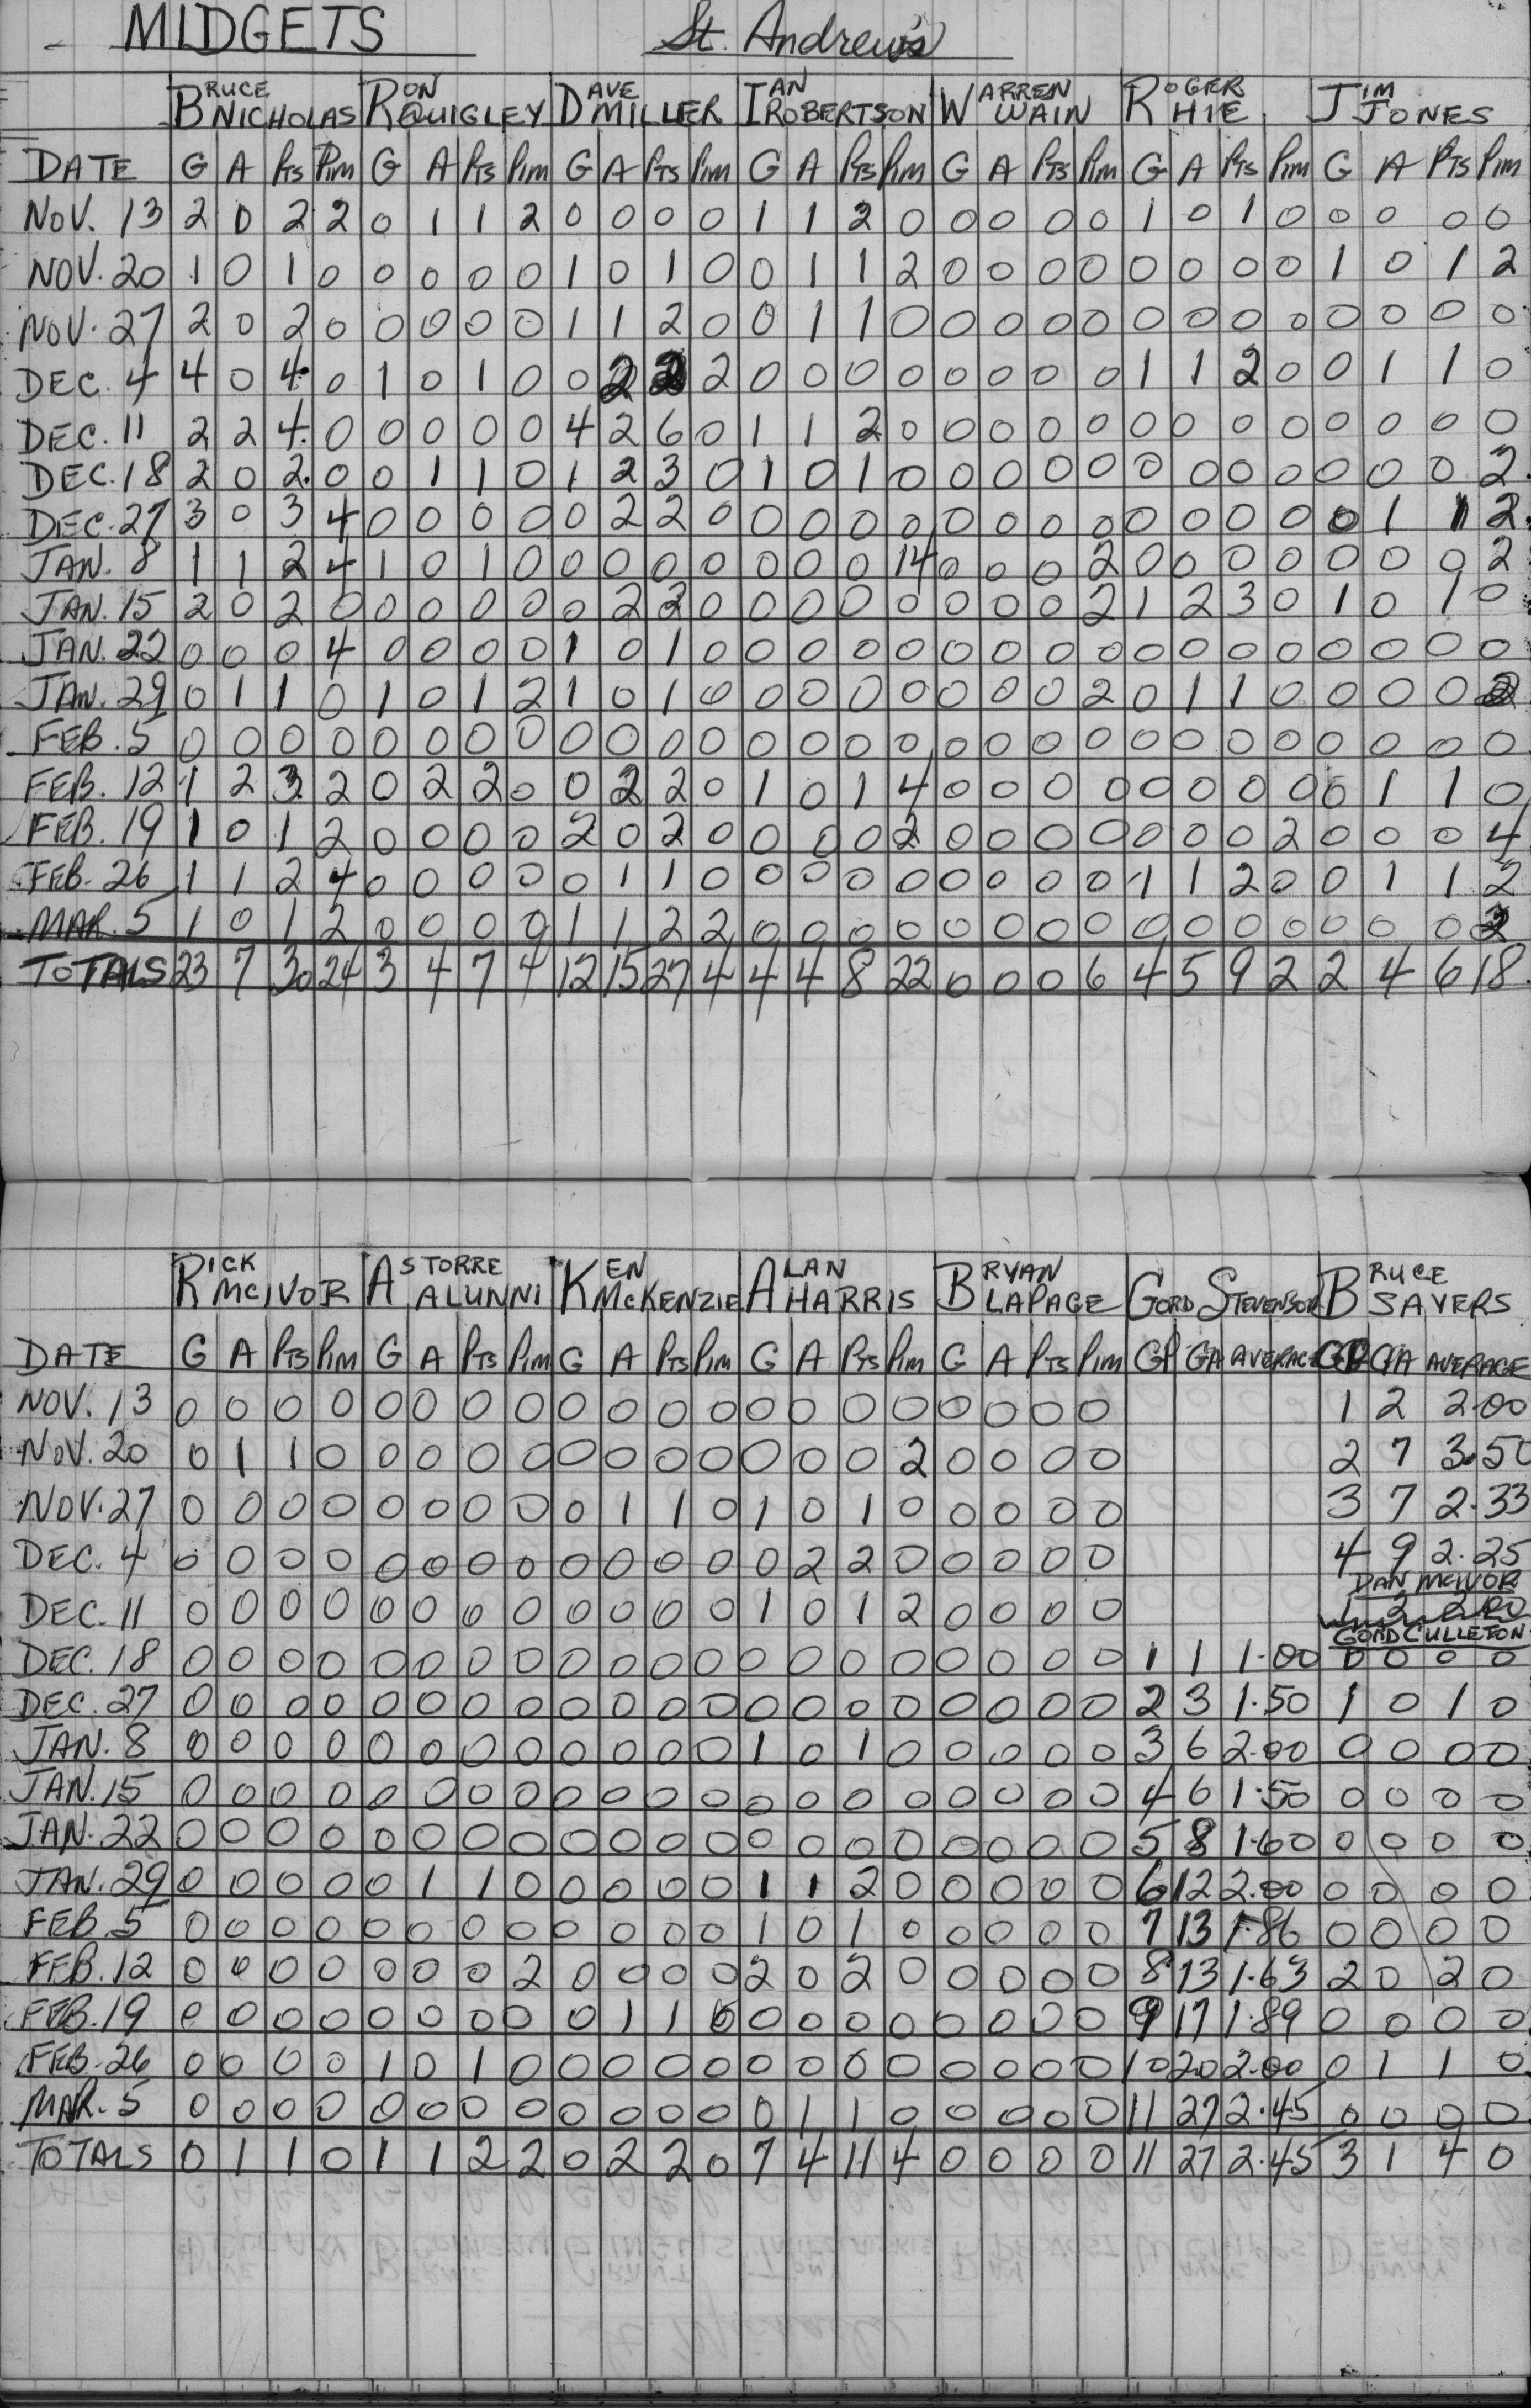 MIDGETS St. Andrew's
BRUCE NICHOLAS RON QUIGLEY DAVE MILLER IAN ROBERTSON WARREN WAIN ROGER HIE JIM JONES
DATE G A PTS PIM G A PTS PIM G A PTS PIM G A PTS PIM G A PTS PIM G A PTS PIM G A PTS PIM
NOV. 13 2 0 2 2 0 1 1 2 0 0 0 0 1 1 2 0 0 0 0 0 1 0 1 0 0 0 0 0
NOV. 20 1 0 1 0 0 0 0 0 1 0 1 0 0 1 1 2 0 0 0 0 0 0 0 0 1 0 1 2
NOV. 27 2 0 2 0 0 0 0 0 1 1 2 0 0 1 1 0 0 0 0 0 0 0 0 0 0 0 0 0
DEC. 4 4 0 4 0 1 0 1 0 0 2 2 2 0 0 0 0 0 0 0 0 1 1 2 0 0 1 1 0
DEC. 11 2 2 4 0 0 0 0 0 4 2 6 0 1 1 2 0 0 0 0 0 0 0 0 0 0 0 0 0
DEC. 18 2 0 2 0 0 1 1 0 1 2 3 0 1 0 1 0 0 0 0 0 0 0 0 0 0 0 0 2
DEC. 27 3 0 3 4 0 0 0 0 0 2 2 0 0 0 0 0 0 0 0 0 0 0 0 0 0 1 1 2
JAN. 8 1 1 2 4 1 0 1 0 0 0 0 0 0 0 0 14 0 0 0 2 0 0 0 0 0 0 0 2
JAN. 15 2 0 2 0 0 0 0 0 0 2 2 0 0 0 0 0 0 0 0 2 1 2 3 0 1 0 1 0
JAN. 22 0 0 0 4 0 0 0 0 1 0 1 0 0 0 0 0 0 0 0 0 0 0 0 0 0 0 0 0
JAN. 29 0 1 1 0 1 0 1 2 1 0 1 0 0 0 0 0 0 0 0 2 0 1 1 0 0 0 0 2
FEB. 5 0 0 0 0 0 0 0 0 0 0 0 0 0 0 0 0 0 0 0 0 0 0 0 0 0 0 0 0
FEB. 12 1 2 3 2 0 2 2 0 0 2 2 0 1 0 1 4 0 0 0 0 0 0 0 0 0 1 1 0
FEB. 19 1 0 1 2 0 0 0 0 2 0 2 0 0 0 0 2 0 0 0 0 0 0 0 2 0 0 0 4
FEB. 26 1 1 2 4 0 0 0 0 0 1 1 0 0 0 0 0 0 0 0 0 1 1 2 0 0 1 1 2
MAR. 5 1 0 1 2 0 0 0 0 1 1 2 2 0 0 0 0 0 0 0 0 0 0 0 0 0 0 0 2
TOTALS 23 7 30 24 3 4 7 4 12 15 27 4 4 4 8 22 0 0 0 6 4 5 9 2 2 4 6 18
RICK MCIVOR ASTORRE ALUNNI KEN MCKENZIE ALAN HARRIS BRYAN LAPAGE GORD STEVENSON BRUCE SAYERS
DATE G A PTS PIM G A PTS PIM G A PTS PIM G A PTS PIM G A PTS PIM GP GA AVERAGE GP GA AVERAGE
NOV. 13 0 0 0 0 0 0 0 0 0 0 0 0 0 0 0 0 0 0 0 0 1 2 2.00
NOV. 20 0 1 1 0 0 0 0 0 0 0 0 0 0 0 0 2 0 0 0 0 2 7 3.50
NOV. 27 0 0 0 0 0 0 0 0 0 1 1 0 1 0 1 0 0 0 0 0 3 7 2.33
DEC. 4 0 0 0 0 0 0 0 0 0 0 0 0 0 2 2 0 0 0 0 0 4 9 2.25
DAN MCIVOR
DEC. 11 0 0 0 0 0 0 0 0 0 0 0 0 1 0 1 2 0 0 0 0 1 2 2.00
GORD CULLETON
DEC. 18 0 0 0 0 0 0 0 0 0 0 0 0 0 0 0 0 0 0 0 0 1 1 1.00 0 0 0 0
DEC. 27 0 0 0 0 0 0 0 0 0 0 0 0 0 0 0 0 0 0 0 0 2 3 1.50 1 0 1 0
JAN. 8 0 0 0 0 0 0 0 0 0 0 0 0 1 0 1 0 0 0 0 0 3 6 2.00 0 0 0 0
JAN. 15 0 0 0 0 0 0 0 0 0 0 0 0 0 0 0 0 0 0 0 0 4 6 1.50 0 0 0 0
JAN. 22 0 0 0 0 0 0 0 0 0 0 0 0 0 0 0 0 0 0 0 0 5 8 1.60 0 0 0 0
JAN. 29 0 0 0 0 0 1 1 0 0 0 0 0 1 1 2 0 0 0 0 0 6 12 2.00 0 0 0 0
FEB. 5 0 0 0 0 0 0 0 0 0 0 0 0 1 0 1 0 0 0 0 0 7 13 1.86 0 0 0 0
FEB. 12 0 0 0 0 0 0 0 2 0 0 0 0 2 0 2 0 0 0 0 0 8 13 1.63 2 0 2 0
FEB. 19 0 0 0 0 0 0 0 0 0 1 1 0 0 0 0 0 0 0 0 0 9 17 1.89 0 0 0 0
FEB. 26 0 0 0 0 1 0 1 0 0 0 0 0 0 0 0 0 0 0 0 0 10 20 2.00 0 1 1 0
MAR. 5 0 0 0 0 0 0 0 0 0 0 0 0 0 1 1 0 0 0 0 0 11 27 2.45 0 0 0 0
TOTALS 0 1 1 0 1 1 2 2 0 2 2 0 7 4 11 4 0 0 0 0 11 27 2.45 3 1 4 0